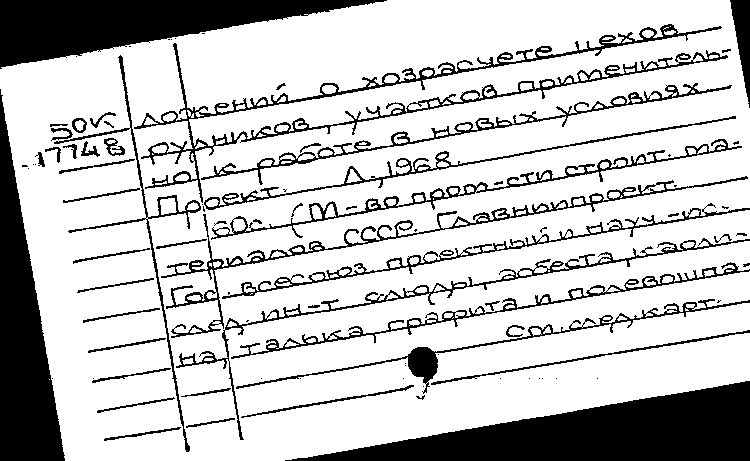 ложений о хозрасчете цехов,
50К
рудников, участков применитель-
17748
но к работе в новых условиях
Проект. Л., 1968.
60с. (М-во пром-сти строит. ма-
териалов СССР. Главнинпроект.
Гос. всесоюз. проектный и науч.-ис-
след. ин-т слюды, асбеста, каоли-
на, талька, графита и полевошпа-
См. след. карт.